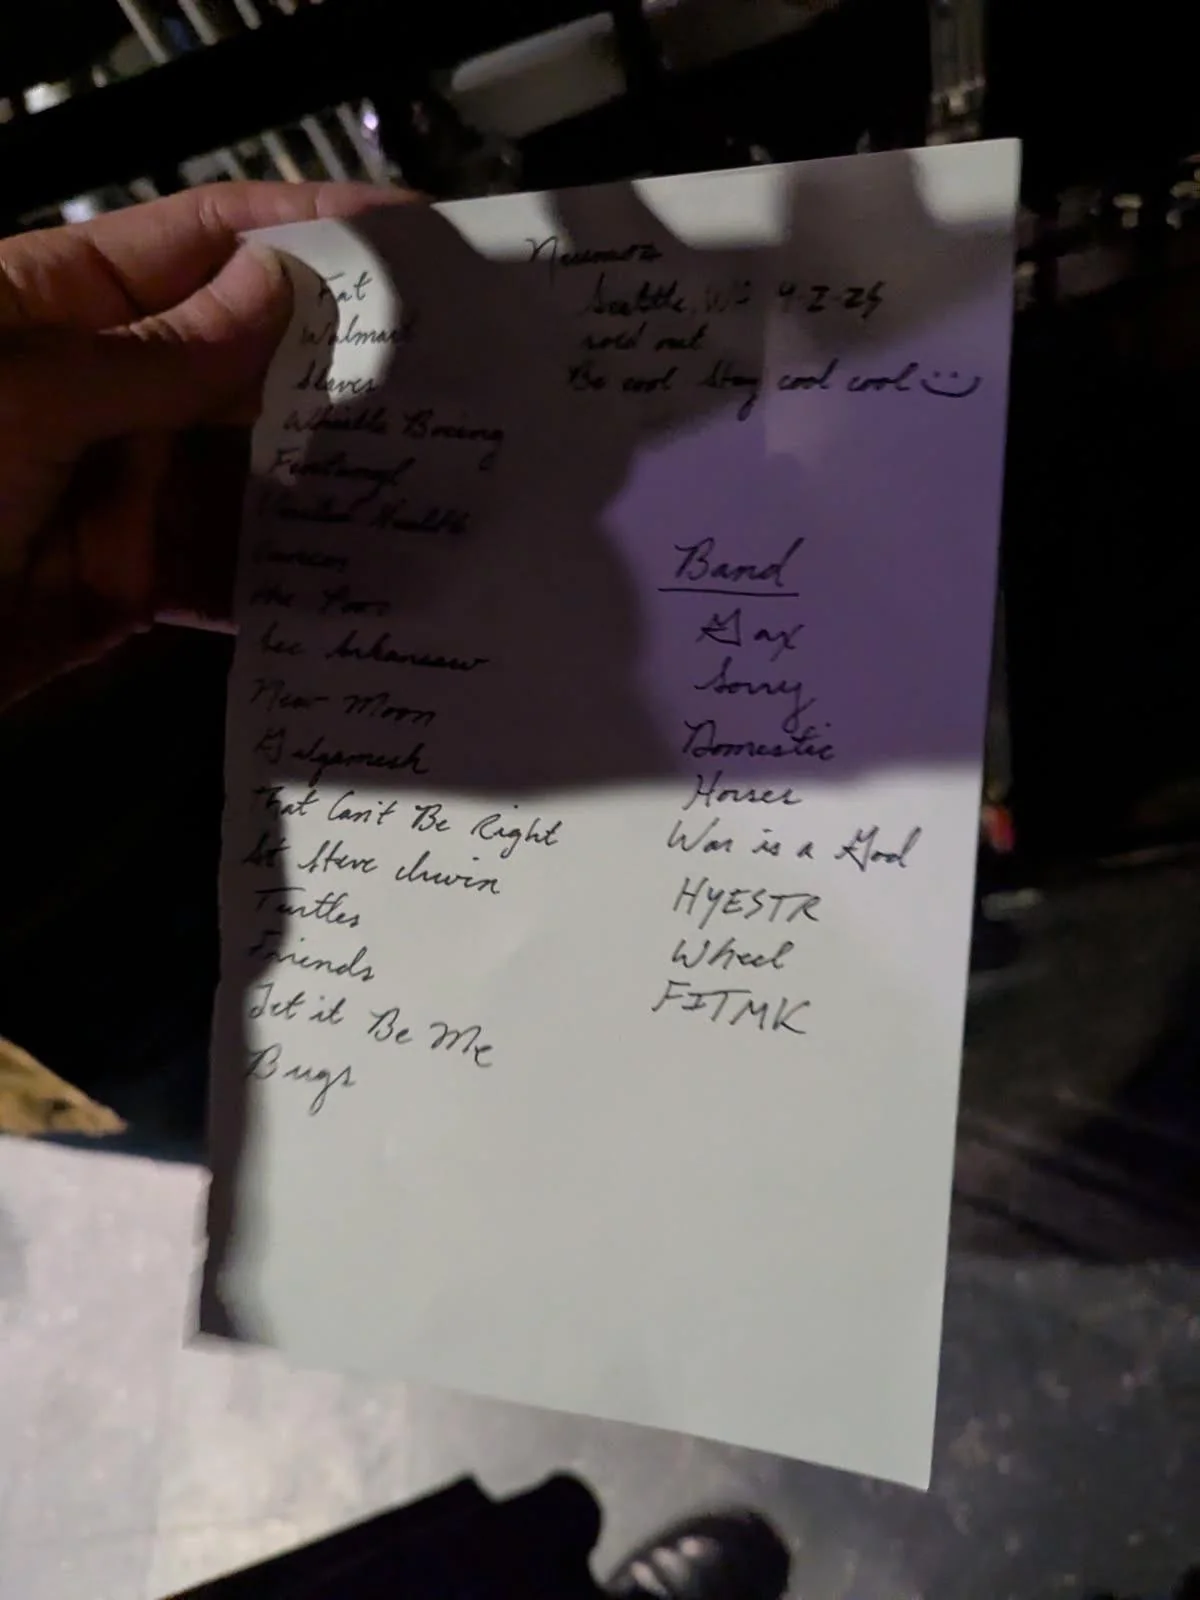 Neumos
Seattle, WA 4-2-25
sold out
Be cool Stay cool cool
Fat
Walmart
Slaves
Whistle Boeing
Fentanyl
United Health
Cancer
The Poor
Lee Arkansaw
New Moon
Gilgamesh
That Can't Be Right
St Steve Irwin
Turtles
Friends
Let it Be Me
Bugs
Band
Sorry
Domestic
Horses
War is a God
HYESTR
Wheel
FITMK